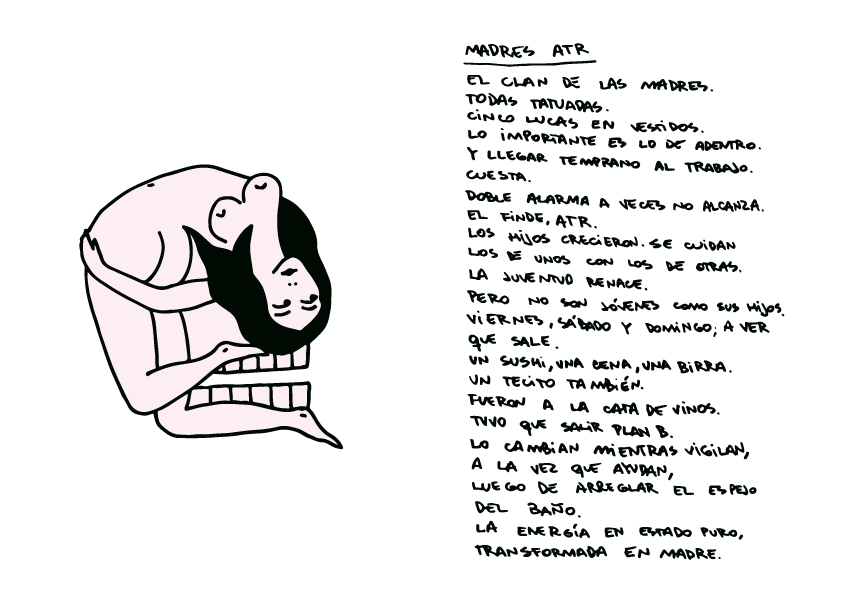 MADRES ATR
EL CLAN DE LAS MADRES.
TODAS TATUADAS.
CINCO LUCAS EN VESTIDOS.
LO IMPORTANTE ES LO DE ADENTRO.
Y LLEGAR TEMPRANO AL TRABAJO.
CUESTA.
DOBLE ALARMA A VECES NO ALCANZA.
EL FINDE, ATR.
LOS HIJOS CRECIERON. SE CUIDAN
LOS DE UNOS CON LOS DE OTRAS.
LA JUVENTUD RENACE.
PERO NO SON JÓVENES COMO SUS HIJOS.
VIERNES, SÁBADO Y DOMINGO; A VER
QUE SALE.
UN SUSHI, UNA CENA, UNA BIRRA.
UN TECITO TAMBIÉN.
FUERON A LA CATA DE VINOS.
TUVO QUE SALIR PLAN B.
LO CAMBIAN MIENTRAS VIGILAN,
A LA VEZ QUE AYUDAN,
LUEGO DE ARREGLAR EL ESPEJO
DEL BAÑO.
LA ENERGÍA EN ESTADO PURO,
TRANSFORMADA EN MADRE.